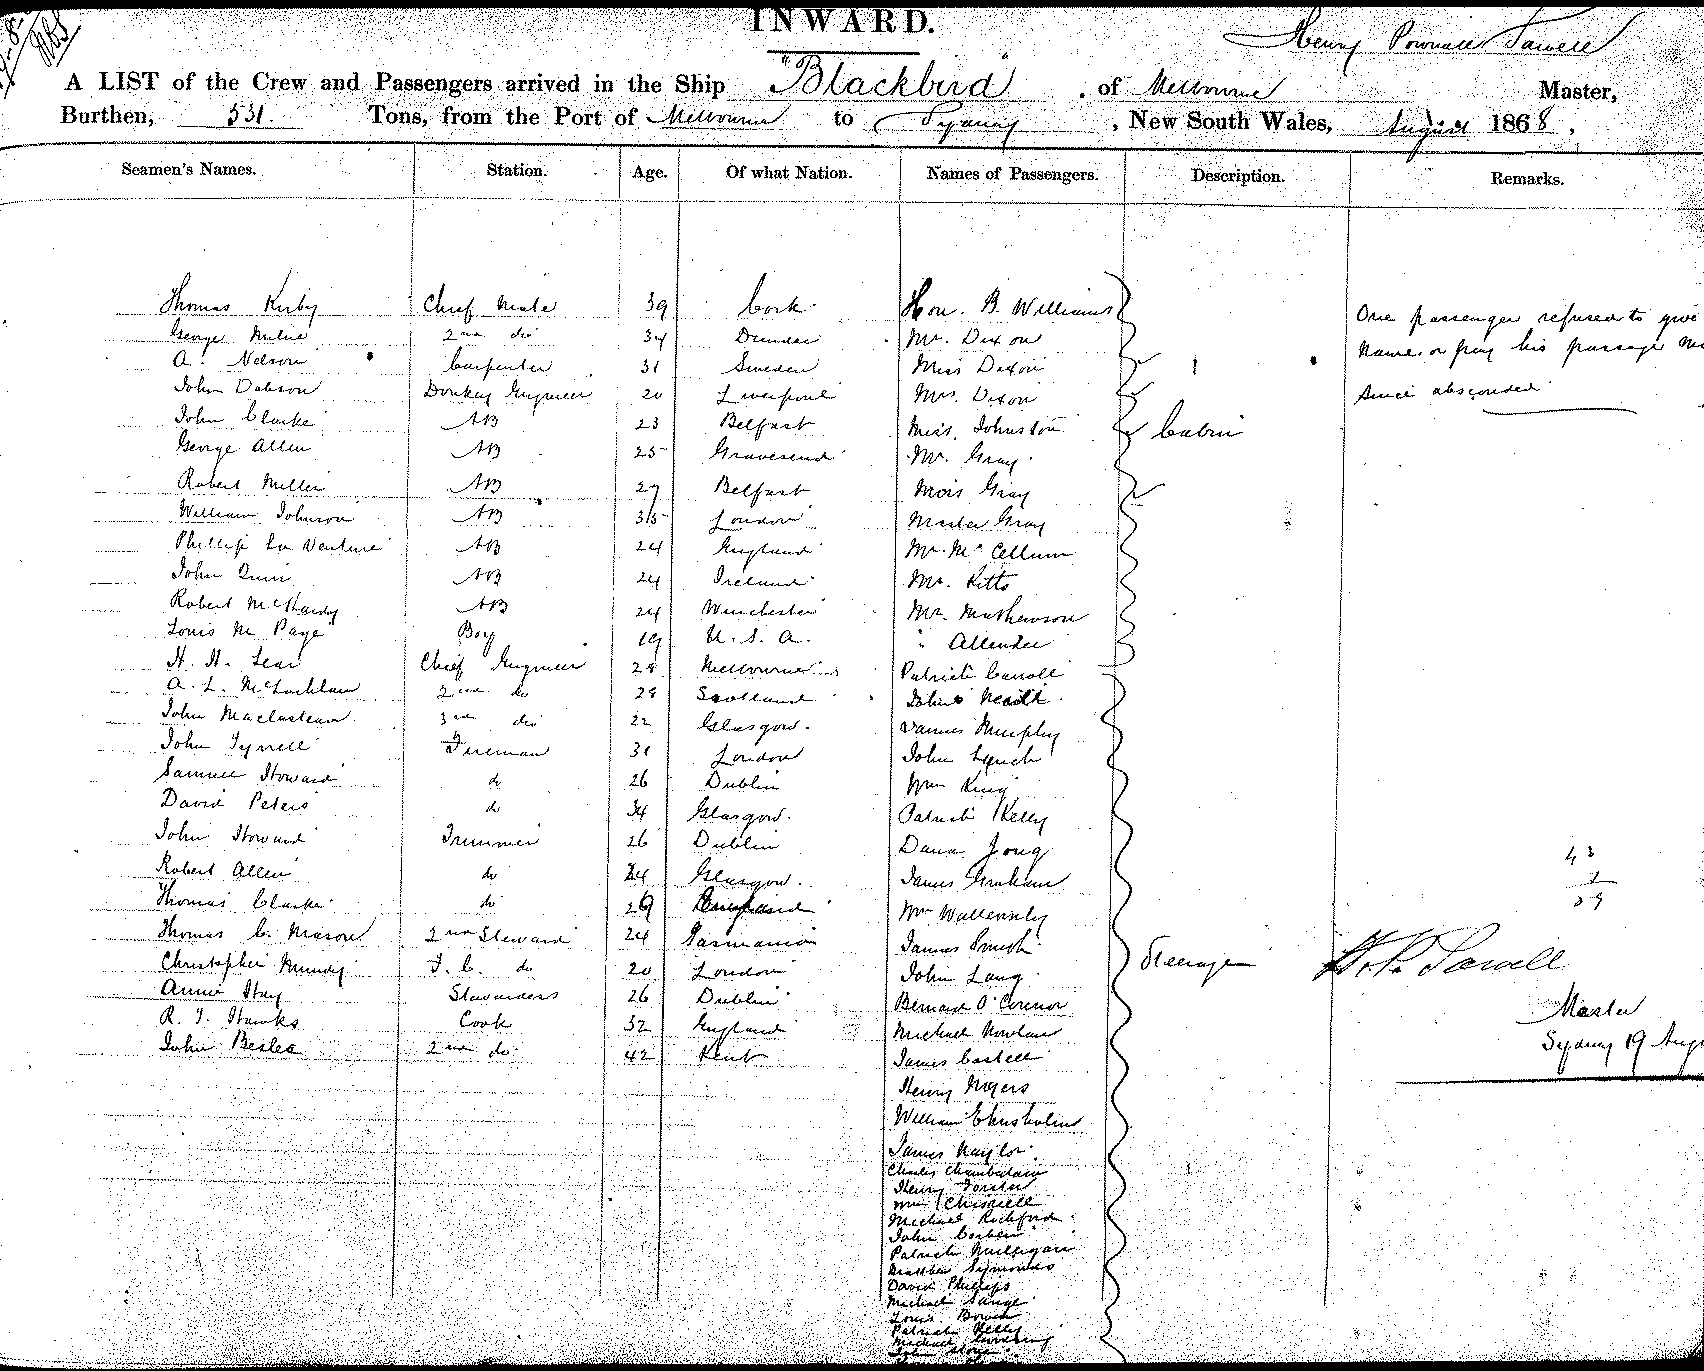 INWARD.
Henry Pownall Sawell
A LIST of the Crew and Passengers arrived in the Ship "Blackbird" , of Melbourne Master,
Burthen, 531. Tons, from the Port of Melbourne to Sydney , New South Wales, August 1868 ,
Seamen's Names. Station. Age. Of what Nation. Names of Passengers. Description. Remarks.
Thomas Kirby Chief Mate 39 Cork Hon. B. Williams
George Milne 2nd do 34 Dundee Mr. Dixon
A. Nelson Carpenter 31 Sweden Miss Dixon
John Dobson Donkey Engineer 20 Liverpool Mrs. Dixon
John Clarke AB 23 Belfast Miss. Johnston Cabin
George Allen AB 25 Gravesend Mr. Gray
Robert Miller AB 27 Belfast Gray
William Johnson AB 35 London Master Gray
Phillip La Venture AB 24 England Mr. McCellum
John Quin AB 24 Ireland Mr. Kitts
Robert McHardy AB 24 Winchester Mr. Mathewson
Louis M Page Boy 19 U. S. A. " Allender
H. H. Lear Chief Engineer 28 Melbourne Patrick Carroll
A. L. McLachlan 2nd do 28 Scotland John
John 3rd do 22 Glasgow. James Murphy
John Tyrrell Fireman 31 London John Lynch
Samuel Howard do 26 Dublin Wm King
David Peters do 34 Glasgow. Patrick Kelly
John Howard Trimmer 26 Dublin
Robert Allen do 24 Glasgow. James Graham
Thomas Clarke do 29 England Wm
Thomas C. Mason 2nd Steward 24 Tasmania James Smith
Christopher Mundy do 20 London John Lang Steerage
Annie Hay Stewardess 26 Dublin Bernard O'Connor
R. J. Hawks Cook 32 England Michael Nowlan
John Beslee 2nd do 42 Kent James Castell
Henry Myers
William Chisholm
James Naylor
Charles Chamberlain
Henry Forster
Wm
Michael Rochford
John Corbein
Patrick Mulligan
Symondes
David Phillips
Michael
Louis
Patrick Kelly
Michael
One passenger refused to give
name or pay his passage
since absconded
43
H. P. Sawell
Master
Sydney 19 Aug